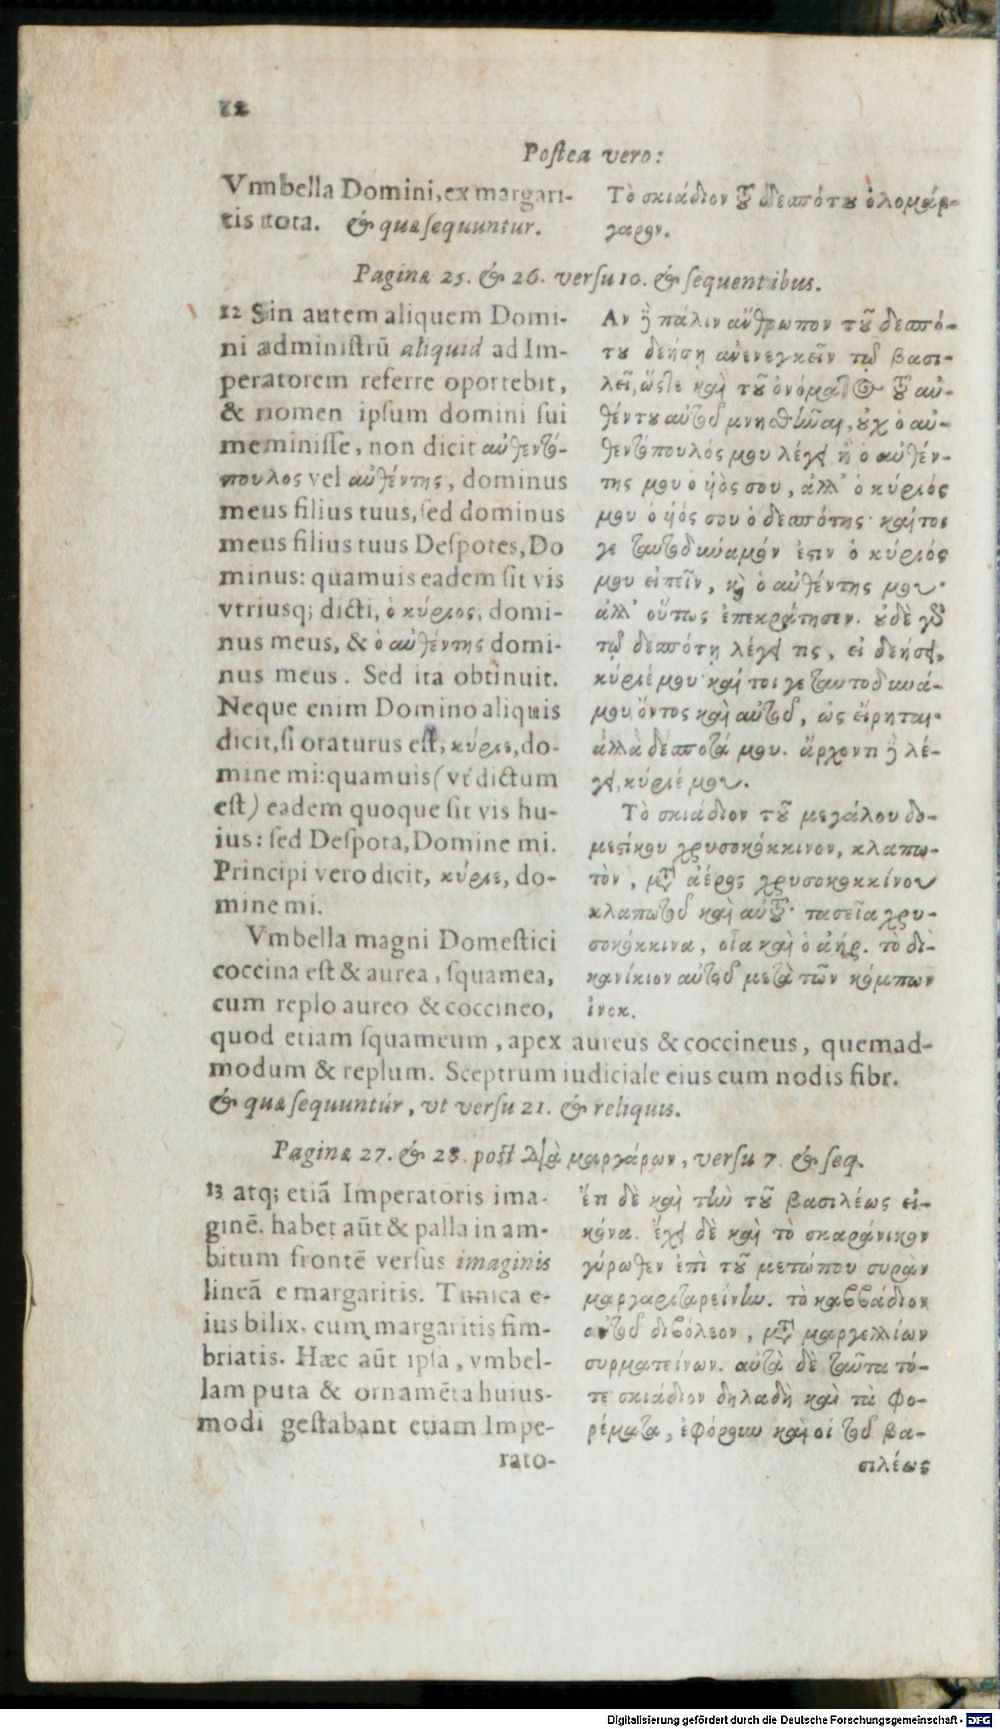 12
Postea vero:
Vmbella Domini, ex margari-
tis tota. & quæ sequuntur.
Τὸ σκιάδιον τοῦ δεσπότου ὁλομάρ-
γαρον.
Paginæ 25. & 26. versu 10. & sequentibus.
12 Sin autem aliquem Domi-
ni administrū aliquid ad Im-
peratorem referre oportebit,
& nomen ipsum domini sui
meminisse, non dicit αὐθεντό-
πουλος vel αὐθέντης, dominus
meus filius tuus, sed dominus
meus filius tuus Despotes, Do
minus: quamuis eadem sit vis
vtriusq; dicti, ὁ κύριος, domi-
nus meus, & ὁ αὐθέντης domi-
nus meus. Sed ita obtinuit.
Neque enim Domino aliquis
dicit, si oraturus est, κύριε, do-
mine mi: quamuis (vt dictum
est) eadem quoque sit vis hu-
ius: sed Despota, Domine mi.
Principi vero dicit, κύριε, do-
mine mi.
Vmbella magni Domestici
coccina est & aurea, squamea,
cum replo aureo & coccineo,
Ἀν ἢ πάλιν ἄνθρωπον τοῦ δεσπό-
του δεήσῃ ἀνενεγκεῖν τῷ βασι-
λεῖ, ὥστε καὶ τοῦ ὀνόματος τοῦ αὐ-
θέντου αὐτοῦ μνησθῆναι, οὐχ ὁ αὐ-
θεντόπουλός μου λέγει ἢ ὁ αὐθέν-
της μου ὁ ὑός σου, ἀλλ' ὁ κύριός
μου ὁ ὑός σου ὁ δεσπότης· καίτοι
γε ταυτοδύναμόν ἐστιν ὁ κύριός
μου εἰπεῖν, καὶ ὁ αὐθέντης μου·
ἀλλ' οὕτως ἐπεκράτησεν. οὐδὲ γὰρ
τῷ δεσπότῃ λέγει τις, εἰ δεήσει,
κύριέ μου· καί τοι γε ταυτοδυνά-
μου ὄντος καὶ αὐτοῦ, ὡς εἴρηται·
ἀλλὰ δέσποτά μου. ἄρχοντι ἢ λέ-
γει, κύριέ μου.
Τὸ σκιάδιον τοῦ μεγάλου δο-
μεστίκου χρυσοκόκκινον, κλαπω-
τὸν, μετὰ ἀέρος χρυσοκοκκίνου
κλαπωτοῦ καὶ αὐτοῦ· τασεῖα χρυ-
σοκόκκινα, οἷα καὶ ὁ ἀήρ. τὸ δι-
κανίκιον αὐτοῦ μετὰ τῶν κόμπων
ἰνοκ.
quod etiam squameum, apex aureus & coccineus, quemad-
modum & replum. Sceptrum iudiciale eius cum nodis fibr.
& quæ sequuntur, vt versu 21. & reliquis.
Paginæ 27. & 28. post διὰ μαργάρων, versu 7. & seq.
13 atq; etiā Imperatoris ima-
ginē. habet aūt & palla in am-
bitum frontē versus imaginis
lineā e margaritis. Tunica e-
ius bilix, cum margaritis fim-
briatis. Hæc aūt ipsa, vmbel-
lam puta & ornamēta huius-
modi gestabant etiam Impe-
rato-
ἔτι δὲ καὶ τὴν τοῦ βασιλέως εἰ-
κόνα. ἔχει δὲ καὶ τὸ σκαράνικον
γύρωθεν ἐπὶ τοῦ μετώπου συρὰν
μαργαριταρείνην. τὸ καββάδιον
αὐτοῦ διβόλεον, μετὰ μαργελλίων
συρματείνων. αὐτὰ δὲ ταῦτα τό-
τε σκιάδιον δηλαδὴ καὶ τὰ φο-
ρέματα, ἐφόρουν καὶ οἱ τοῦ βα-
σιλέως
Digitalisierung gefördert durch die Deutsche Forschungsgemeinschaft - DFG